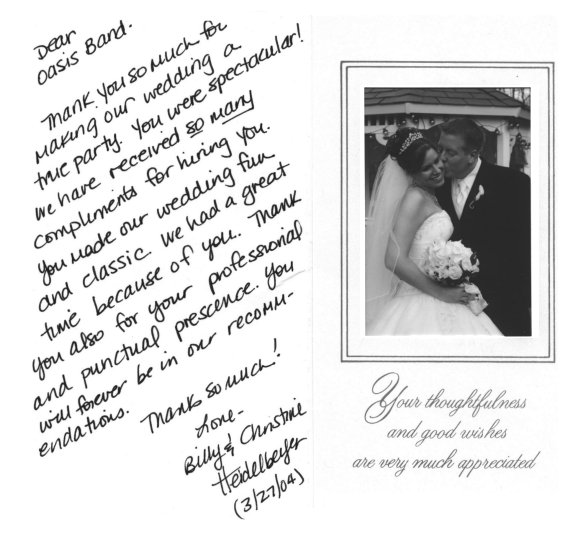 Dear
Oasis Band.
Thank you so much for
making our wedding a
true party. You were spectacular!
we have received so many
compliments for hiring you.
you made our wedding fun
and classic. we had a great
time because of you. Thank
you also for your professional
and punctual prescence. you
will forever be in our recomm-
endations.
Thanks so much!
Love-
Billy & Christine
Heidelbeyer
(3/27/04)
Your thoughtfulness
and good wishes
are very much appreciated